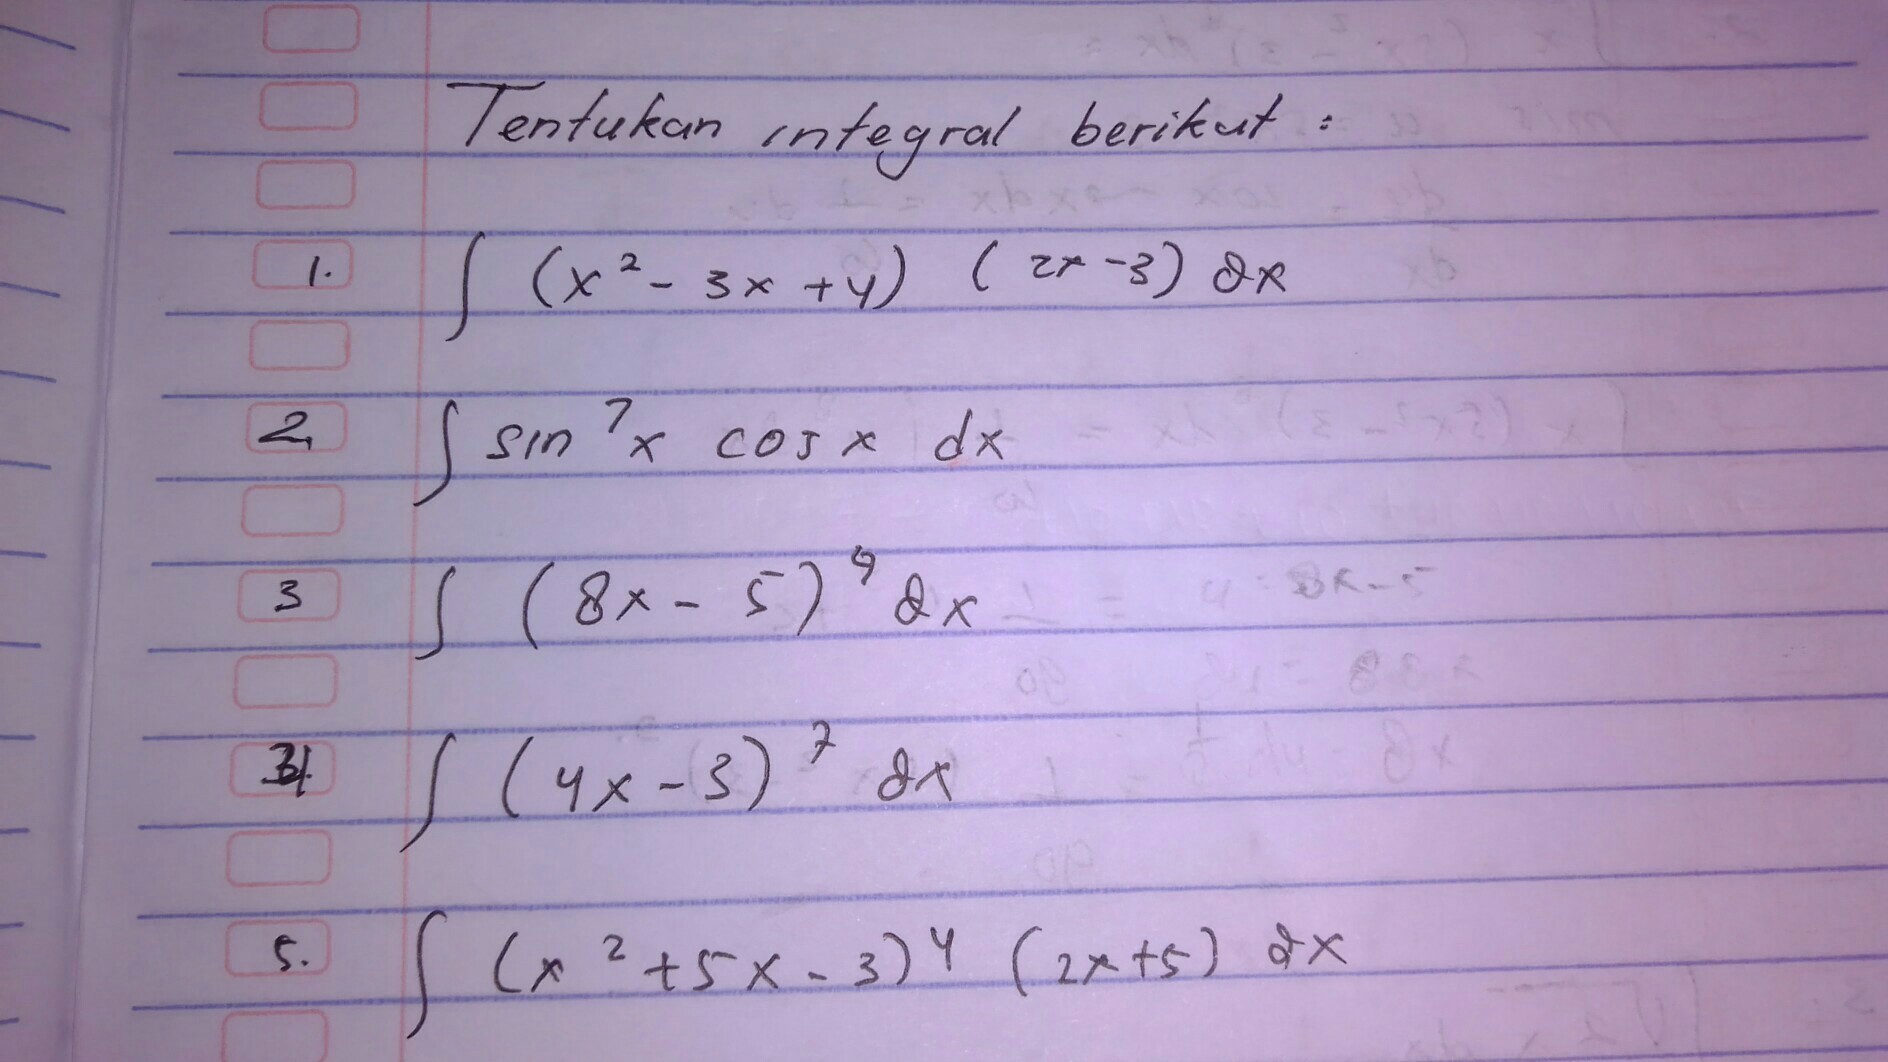 Tentukan integral berikut :
1. ∫ (x² - 3x + 4) (2x - 3) dx
2. ∫ sin⁷x cos x dx
3 ∫ (8x - 5)⁹ dx
4. ∫ (4x - 3)⁷ dx
5. ∫ (x² + 5x - 3)⁴ (2x + 5) dx